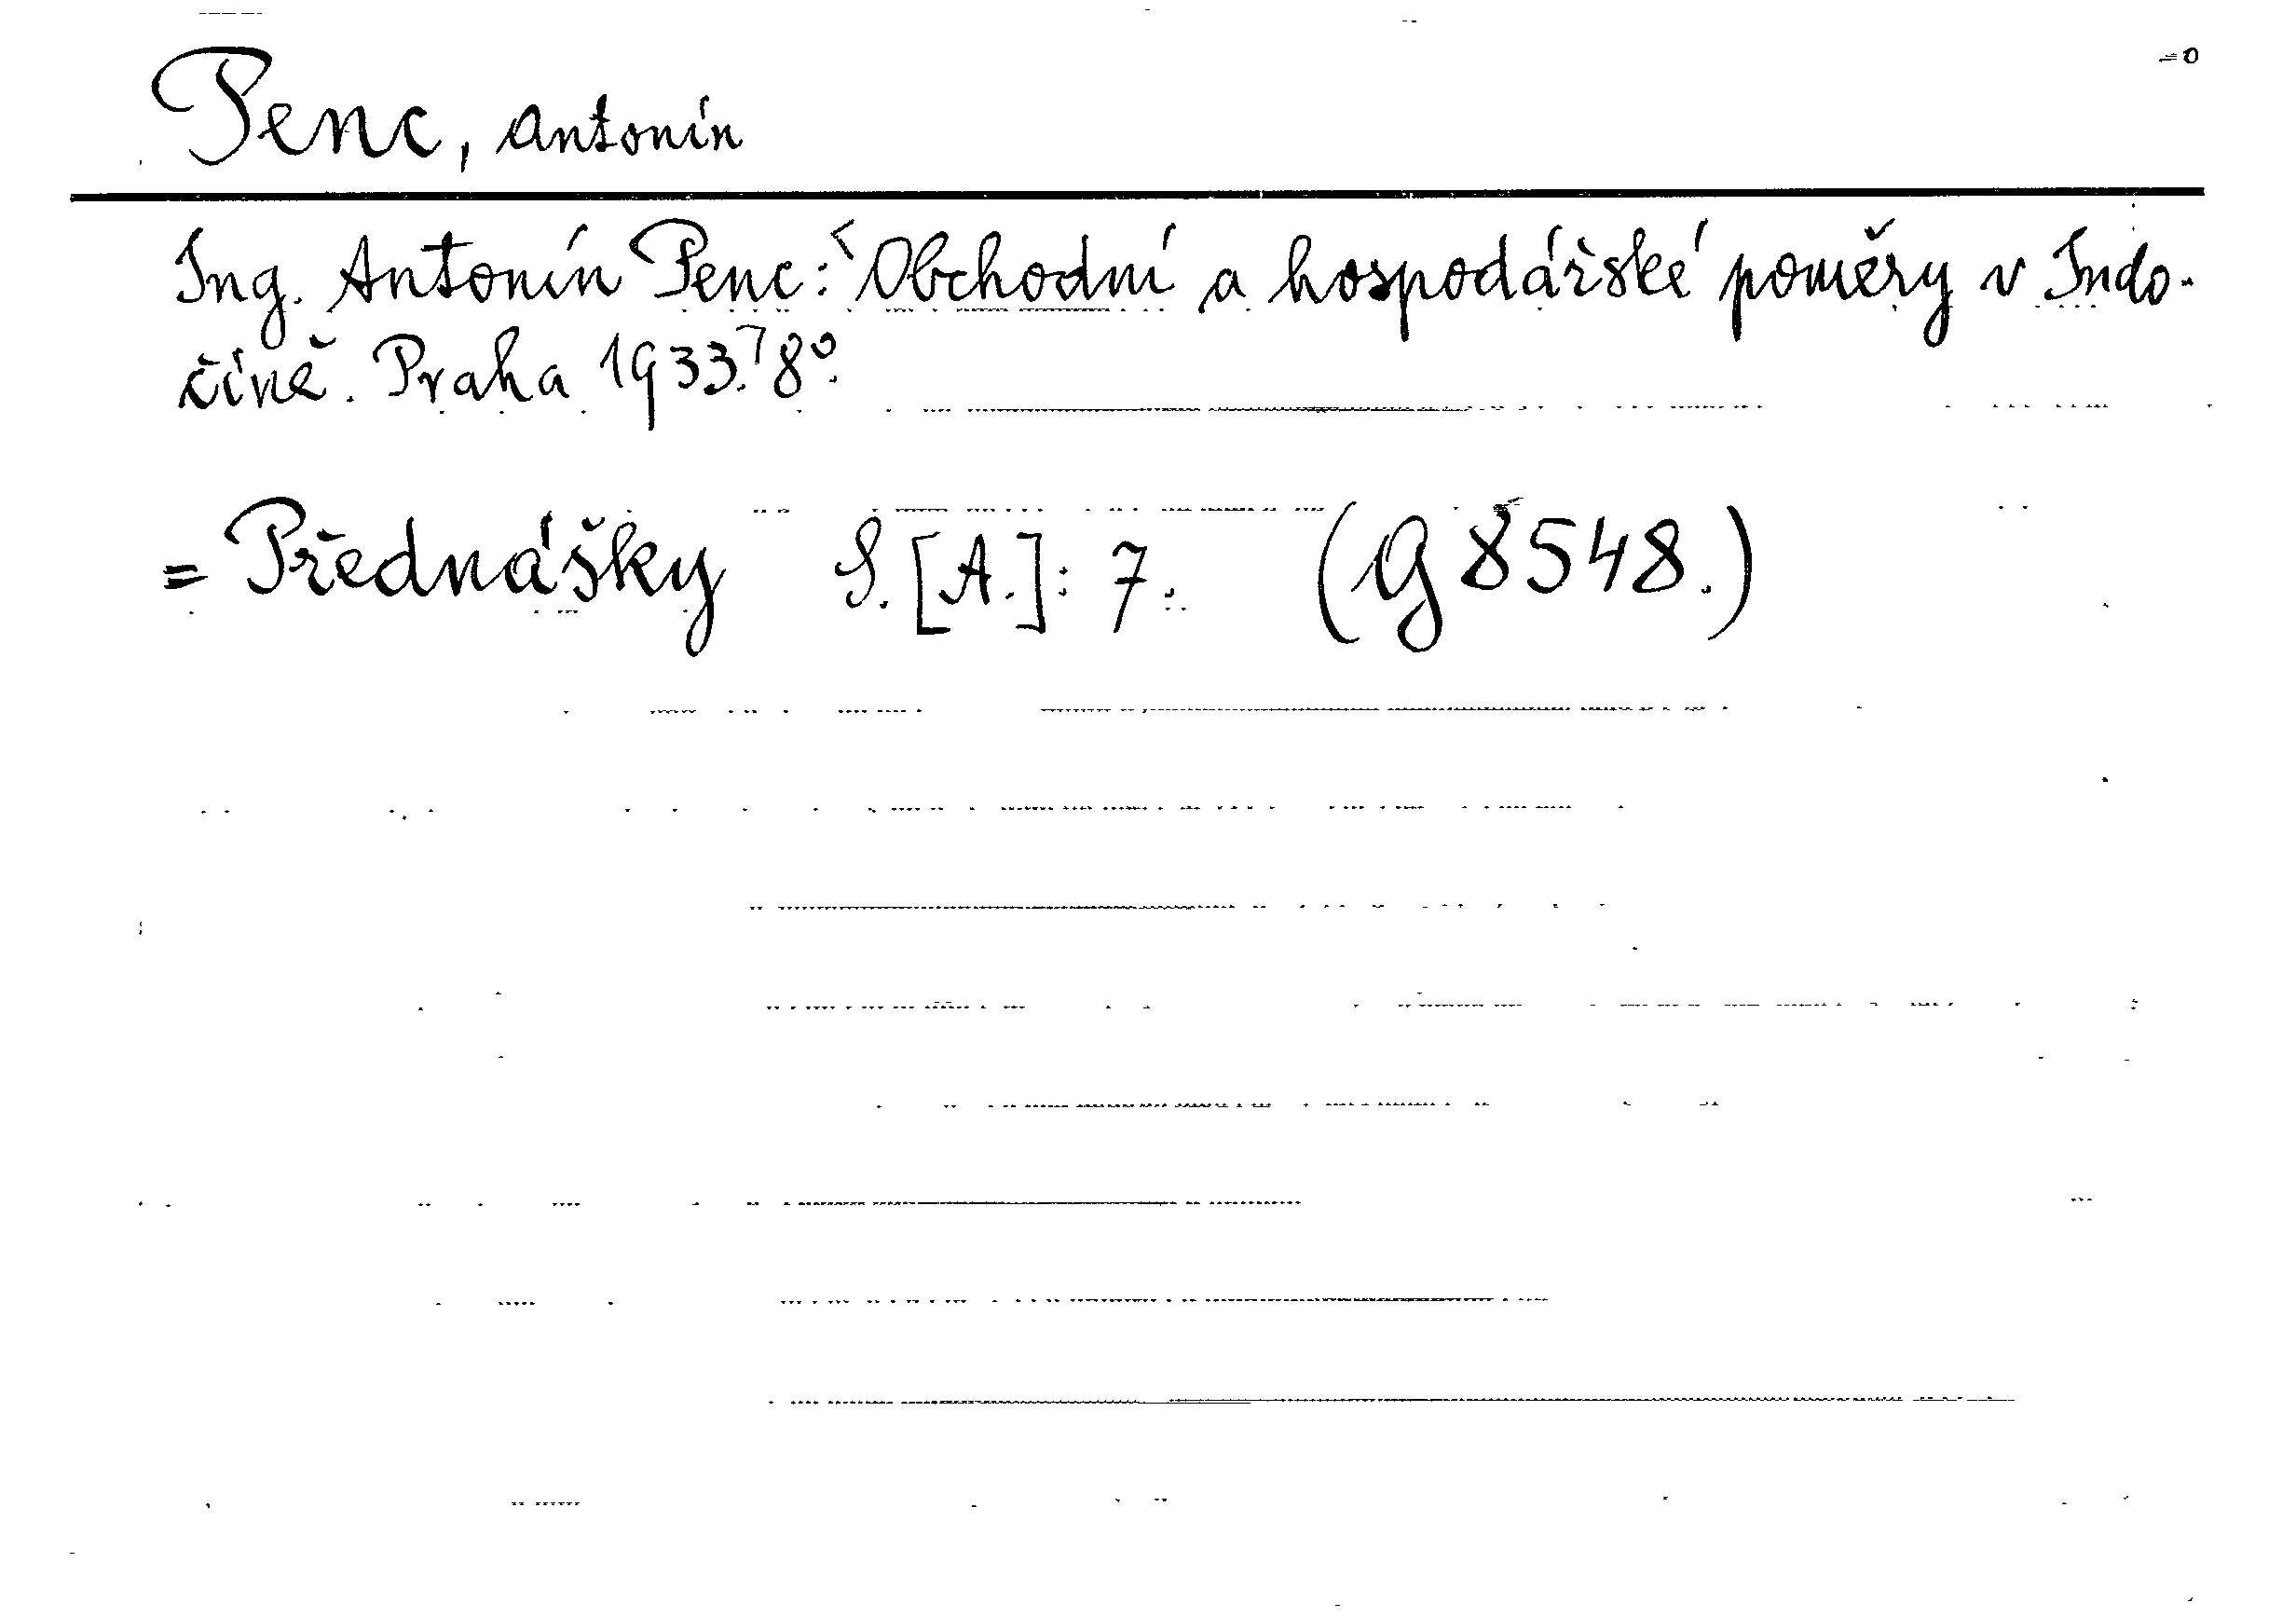 Penc, Antonín
Ing. Antonín Penc: Obchodní a hospodářské poměry v Indo-
číně. Praha 1933. 8°.
= Přednášky S. [A.]: 7. (G 8548.)